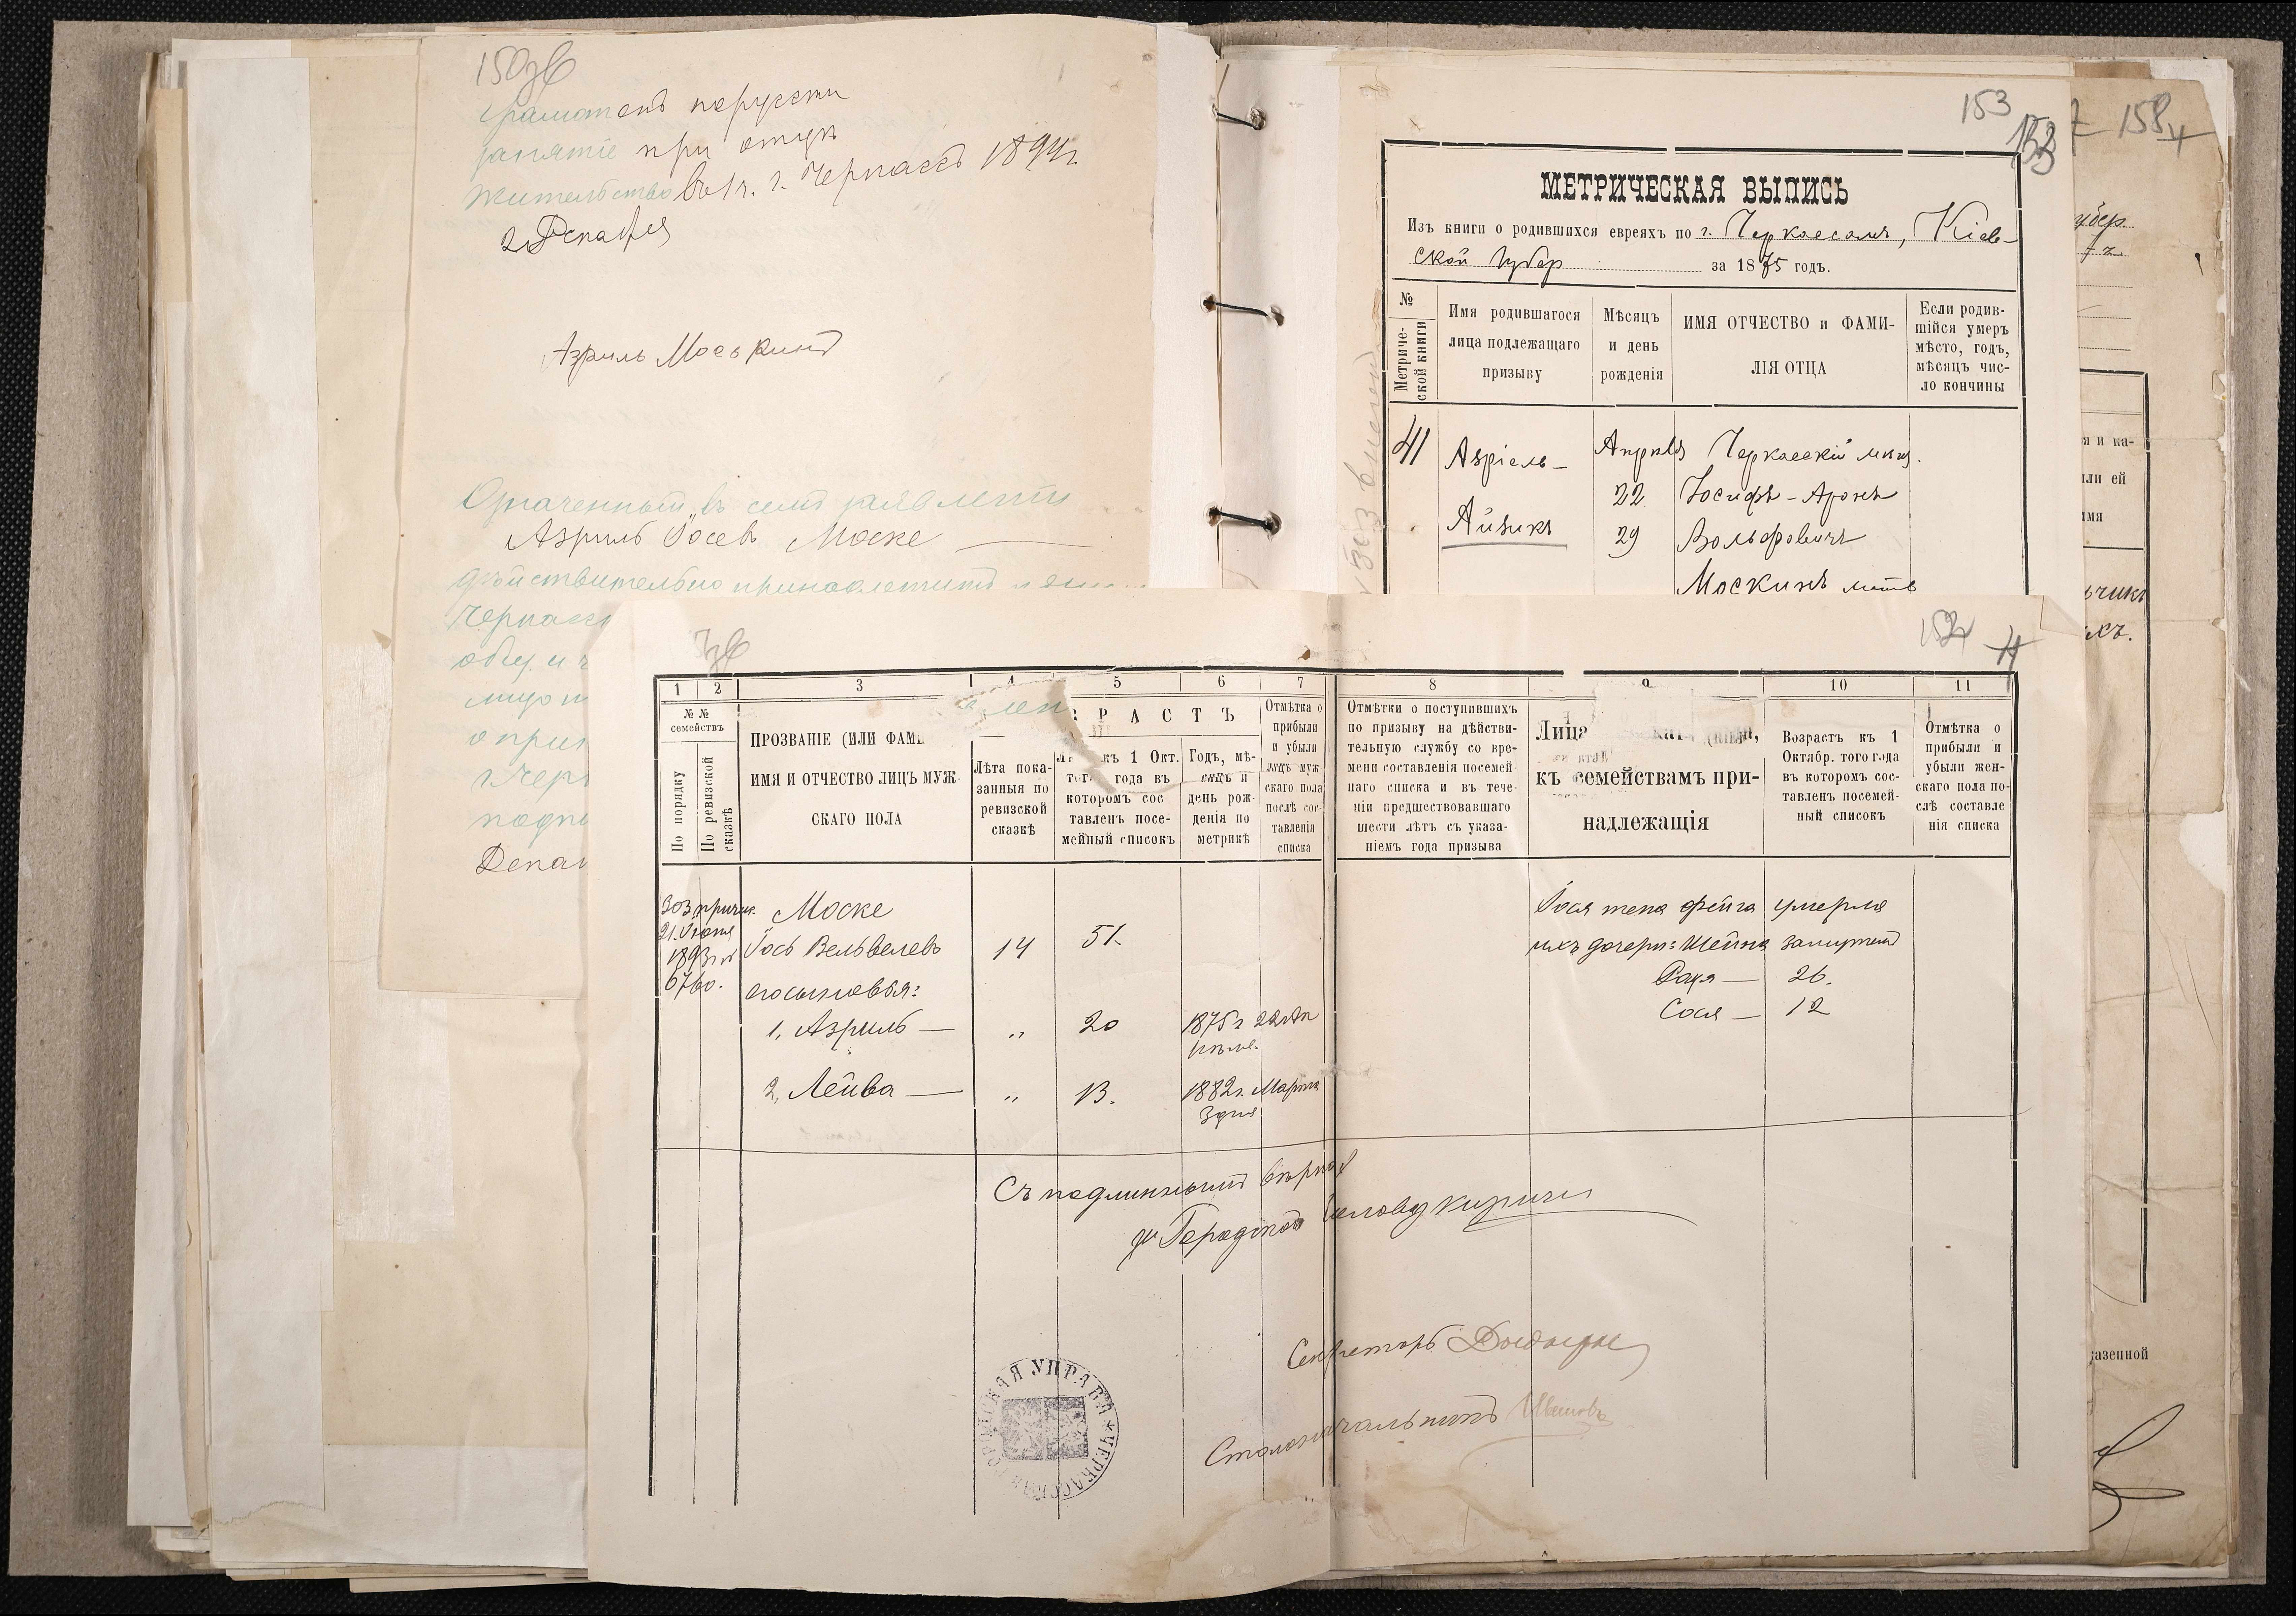 150
грамотенъ порусски
занятіе при отцѣ
жительство въ 1 ч. г. Черкассъ 1894 г.
2 Декабря
Азриль Москинъ
Означенный въ семъ заявленіи
Азриль Іосев Моске
дѣйствительно принадлежитъ
Черкасс
общ. и
лицо
о при
г. Чер
подпи
Декаб
153
158
МЕТРИЧЕСКАЯ ВЫПИСЬ
Изъ книги о родившихся евреяхъ по г. Черкассамъ, Кіев-
ской Губер за 1875 годъ.
№ Метриче-ской книги
Имя родившагося лица подлежащаго призыву
Мѣсяцъ и день рожденія
ИМЯ ОТЧЕСТВО и ФАМИ-ЛІЯ ОТЦА
Если родив-шійся умеръ мѣсто, годъ, мѣсяцъ чис-ло кончины
41 Азріель- Апрѣля Черкасскій мѣщ.
22 Іосифъ-Аронъ
Айзикъ 29 Вольфовичъ
Москинъ мать
убер.
я и ка-
или ей
имя
ьчикъ
азенной
152
1 2 3 4 5 6 7 8 9 10 11
№ № семействъ
По порядку
По ревизской сказкѣ
ПРОЗВАНІЕ (ИЛИ ФАМИ
ИМЯ И ОТЧЕСТВО ЛИЦЪ МУЖ-
СКАГО ПОЛА
РАСТЪ
Лѣта пока-занныя по ревизской сказкѣ
къ 1 Окт. того года въ котором​ъ сос тавленъ посе-мейный списокъ
Годъ, мѣ-сяцъ и день рож-денія по метрикѣ
Отмѣтка о прибыли и убыли лицъ муж скаго пола послѣ сос-тавленія списка
Отмѣтки о поступившихъ по призыву на дѣйстви-тельную службу со вре-мени составленія посемей наго списка и въ тече-ніи предшествовавшаго шести лѣтъ съ указа-ніемъ года призыва
Лица
къ семействамъ при-
надлежащія
Возрастъ къ 1 Октябр. того года въ которомъ сос-тавленъ посемей-ный списокъ
Отмѣтка о прибыли и убыли жен-скаго пола по-слѣ составле нія списка
303 причис. Моске Іося жена Фейга умерла
21 Іюня
1893 г. Іось Вельвелевъ 14 51. ихъ дочери: Шейна замужемъ
6760. его сыновья: Рахя — 26.
Сося — 12
1, Азриль — „ 20 1875 г. 22 Ап
2, Лейва — „ 13. 1882 г. Марта
3 дня
Съ подлиннымъ вѣрно
Городской Голова
Секретарь
Столоначальникъ Ивановъ
ЧЕРКАССКАЯ ГОРОДСКАЯ УПРАВА